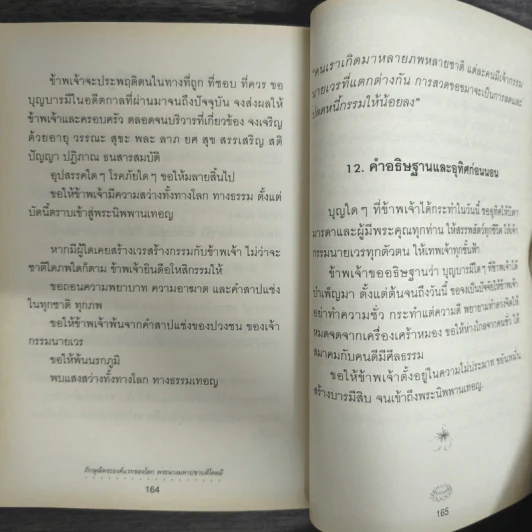 ข้าพเจ้าจะประพฤติตนในทางที่ถูก ที่ชอบ ที่ควร ขอ
บุญบารมีในอดีตกาลที่ผ่านมาจนถึงปัจจุบัน จงส่งผลให้
ข้าพเจ้าและครอบครัว ตลอดจนบริวารที่เกี่ยวข้อง จงเจริญ
ด้วยอายุ วรรณะ สุขะ พละ ลาภ ยศ สุข สรรเสริญ สติ
ปัญญา ปฏิภาณ ธนสารสมบัติ
อุปสรรคใดๆ โรคภัยใดๆ ขอให้มลายสิ้นไป
ขอให้ข้าพเจ้ามีความสว่างทั้งทางโลก ทางธรรม ตั้งแต่
บัดนี้ตราบเข้าสู่พระนิพพานเทอญ
หากมีผู้ใดเคยสร้างเวรสร้างกรรมกับข้าพเจ้า ไม่ว่าจะ
ชาติใดภพใดก็ตาม ข้าพเจ้ายินดีอโหสิกรรมให้
ขอถอนความพยาบาท ความอาฆาต และคำสาปแช่ง
ในทุกชาติ ทุกภพ
ขอให้ข้าพเจ้าพ้นจากคำสาปแช่งของปวงชน ของเจ้า
กรรมนายเวร
ขอให้พ้นนรกภูมิ
พบแสงสว่างทั้งทางโลก ทางธรรมเทอญ
ภิกษุณีพระองค์แรกของโลก พระนางมหาปชาบดีโคตมี
164
"คนเราเกิดมาหลายภพหลายชาติ แต่ละคนมีเจ้ากรรม
นายเวรที่แตกต่างกัน การสวดขอขมาจะเป็นการลดและ
ปลดหนี้กรรมให้น้อยลง"
12. คำอธิษฐานและอุทิศก่อนนอน
บุญใดๆ ที่ข้าพเจ้าได้กระทำในวันนี้ ขออุทิศให้บิดา
มารดาและผู้มีพระคุณทุกท่าน ให้สรรพสัตว์ทุกชีวิต ให้เจ้า
กรรมนายเวรทุกตัวตน ให้เทพเจ้าทุกชั้นฟ้า
ข้าพเจ้าขออธิษฐานว่า บุญบารมีใดๆ ที่ข้าพเจ้าได้
บำเพ็ญมา ตั้งแต่ต้นจนถึงวันนี้ ขอจงเป็นปัจจัยให้ข้าพเจ้า
อย่าทำความชั่ว กระทำแต่ความดี พยายามทำดวงจิตให้
หมดจดจากเครื่องเศร้าหมอง ขอให้ห่างไกลจากคนชั่ว ได้
สมาคมกับคนดีมีศีลธรรม
ขอให้ข้าพเจ้าตั้งอยู่ในความไม่ประมาท ขยันหมั่น
สร้างบารมีสิบ จนเข้าถึงพระนิพพานเทอญ.
165